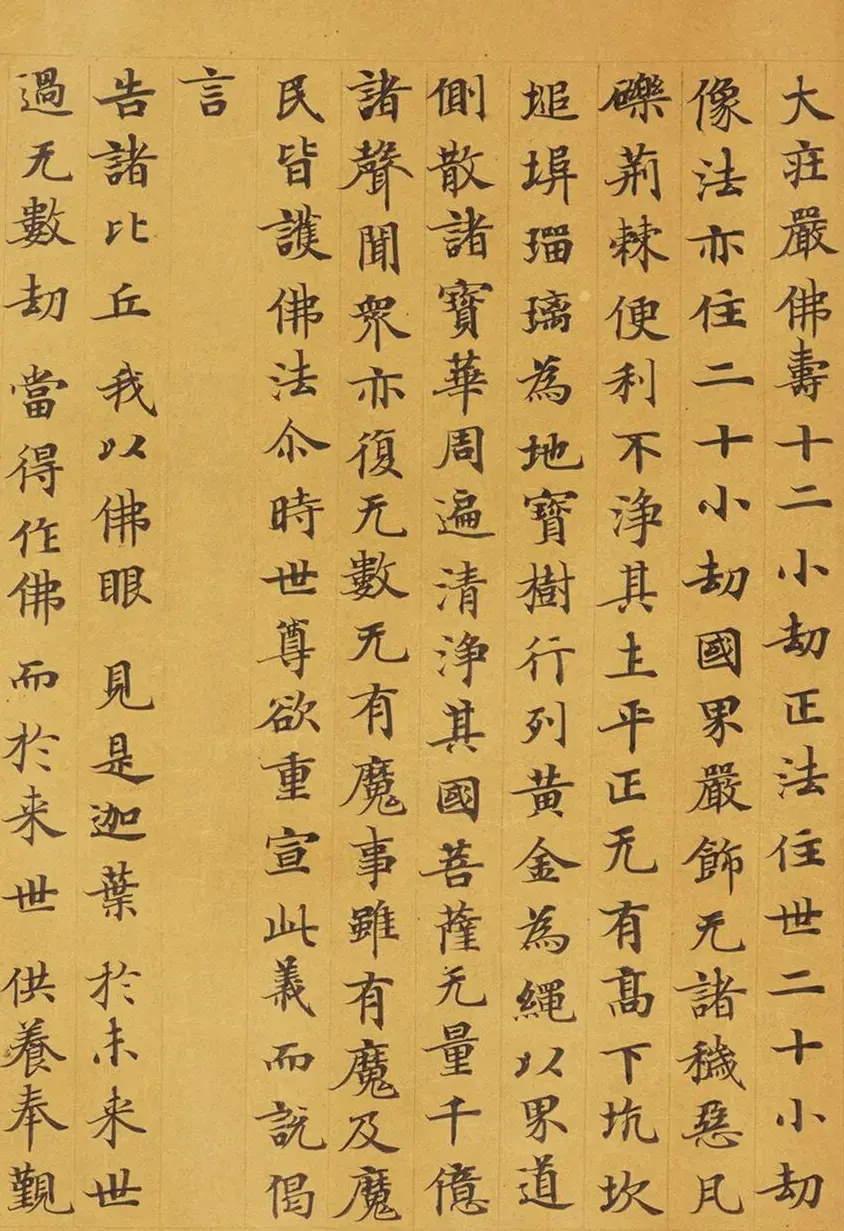 大莊嚴佛壽十二小劫正法住世二十小劫
像法亦住二十小劫國界嚴飾无諸穢惡凡
礫荊棘便利不淨其土平正无有高下坑坎
塠埠瑠璃為地寶樹行列黃金為繩以界道
側散諸寶華周遍清淨其國菩薩无量千億
諸聲聞衆亦復无數无有魔事雖有魔及魔
民皆護佛法尒時世尊欲重宣此義而說偈
言
告諸比丘 我以佛眼 見是迦葉 於未来世
過无數劫 當得作佛 而於来世 供養奉覲